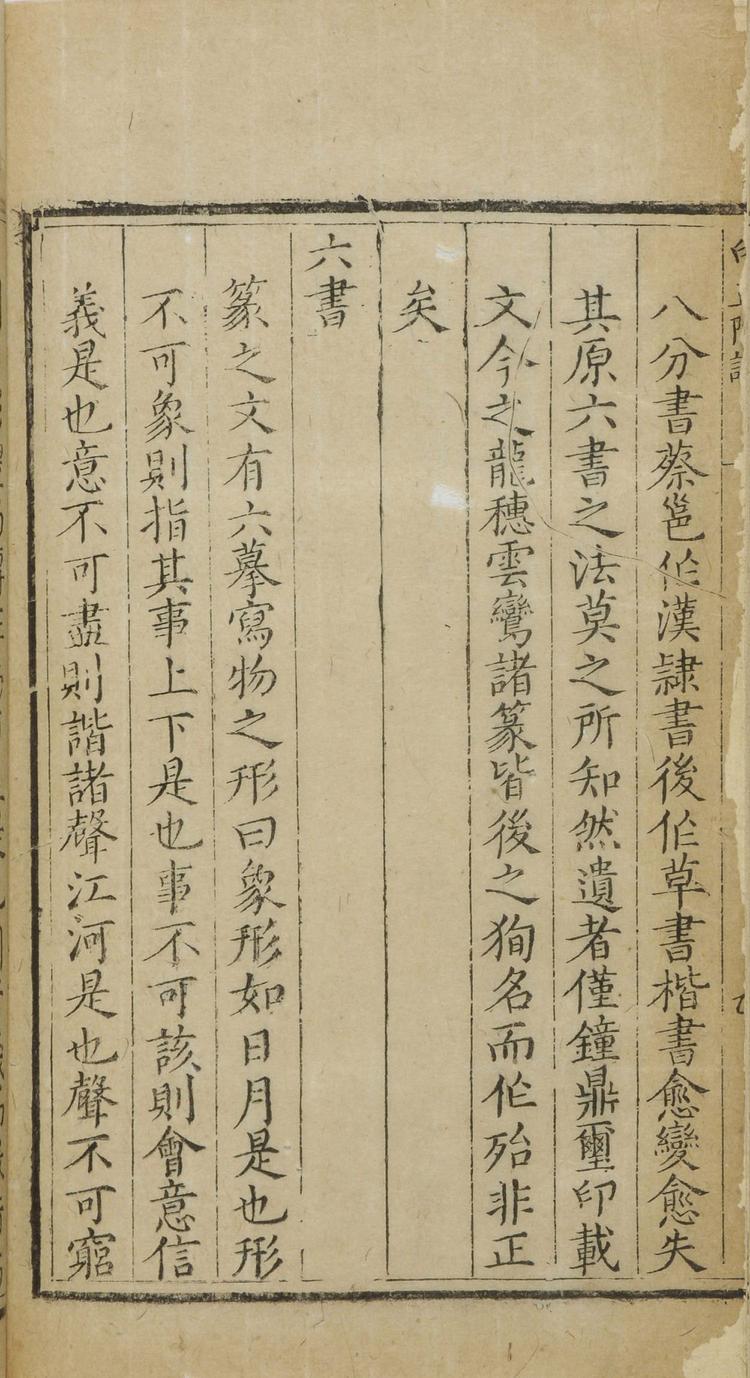 八分書蔡邕作漢隷書後作草書楷書愈變愈失
其原六書之法莫之所知然遺者僅鐘鼎璽印載
文今之龍穗雲鸞諸篆皆後之狥名而作殆非正
矣
六書
篆之文有六摹寫物之形曰象形如日月是也形
不可象則指其事上下是也事不可該則會意信
義是也意不可盡則諧諸聲江河是也聲不可窮